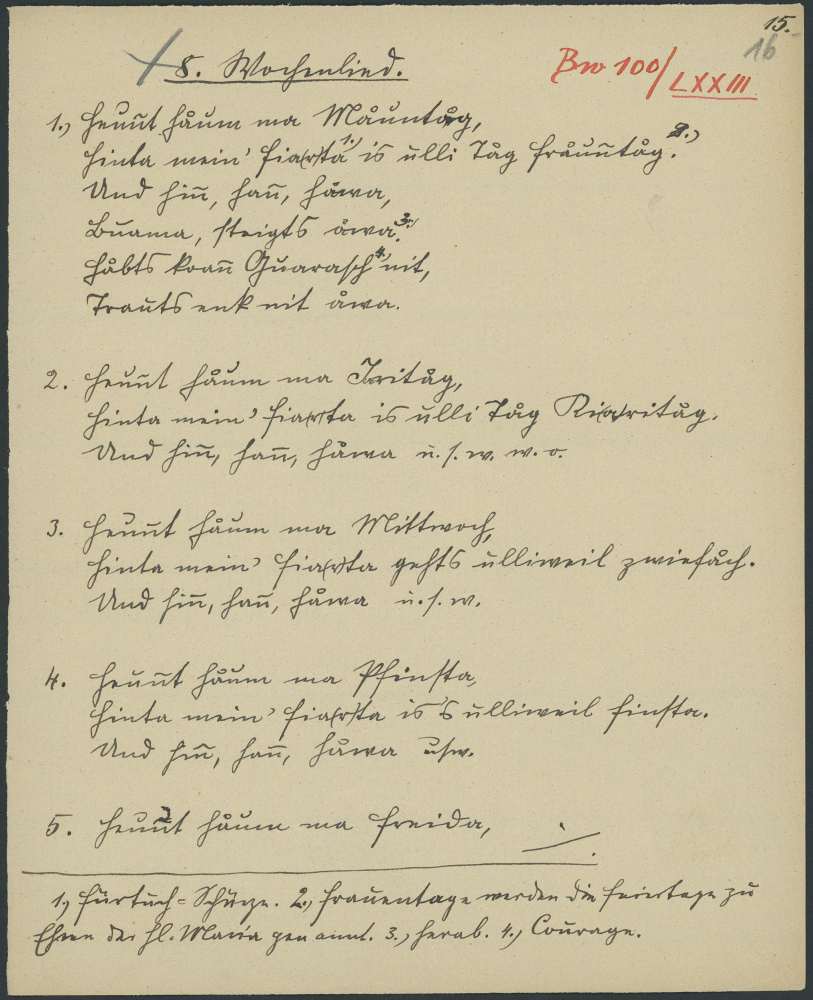 15.
16
8. Wochenlied.
Bw 100/LXXIII
1.) Heunt håum ma Måuntåg,
Hinta mein' Fia(r)ta 1.) is ulli Tåg Fråuntåg. 2.)
Und hin, han, håwa,
Buama, steigts åwa. 3.)
Håbts koan Guarasch 4.) nit,
Trauts enk nit åwa.
2. Heunt håum ma Iritåg,
Hinta mein' Fia(r)ta is ulli Tåg Ri(a)ritåg.
Und hin, han, håwa u. s. w. w. o.
3. Heunt håum ma Mittwoch,
Hinta mein' Fia(r)ta gehts ulliweil zwiefåch.
Und hin, han, håwa u. s. w.
4. Heunt håum ma Pfinsta,
Hinta mein' Fia(r)ta is's ulliweil finsta.
Und hin, han, håwa usw.
5. Heunt håum ma Freida, ./.
1.) Fürtuch = Schürze. 2.) Frauentage werden die Feiertage zu
Ehren der hl. Maria genannt. 3.) herab. 4.) Courage.